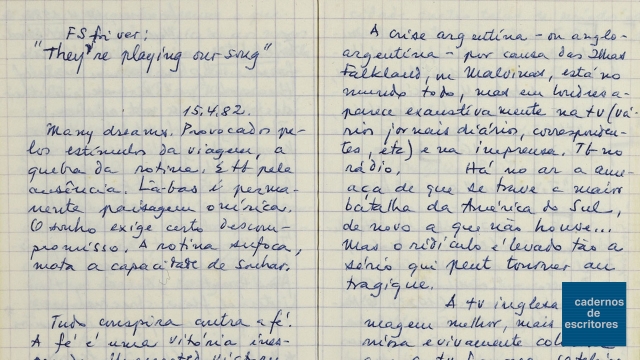 FS foi ver:
"They're playing our song"
15.4.82.
Many dreams. Provocados pe-
los estímulos da viagem, a
quebra da rotina. E tb pela
ausência. Là-bas é perma-
nente paisagem onírica.
O sonho exige certo descom-
promisso. A rotina sufoca,
mata a capacidade de sonhar.
Tudo conspira contra a fé.
A fé é uma vitória ines-
A crise argentina - ou anglo-
argentina - por causa das Ilhas
Falkland, ou Malvinas, está no
mundo todo, mas em Londres a-
parece exaustivamente na tv (vá-
rios jornais diários, corresponden-
tes, etc) e na imprensa. Tb no
rádio. Há no ar a ame-
aça de que se trave a maior
batalha da América do Sul,
de novo a que não houve...
Mas o ridículo é levado tão a
sério qui peut tourner au
tragique.
A tv inglesa
magem melhor, mais
nítida e vivamente
cadernos
de escritores